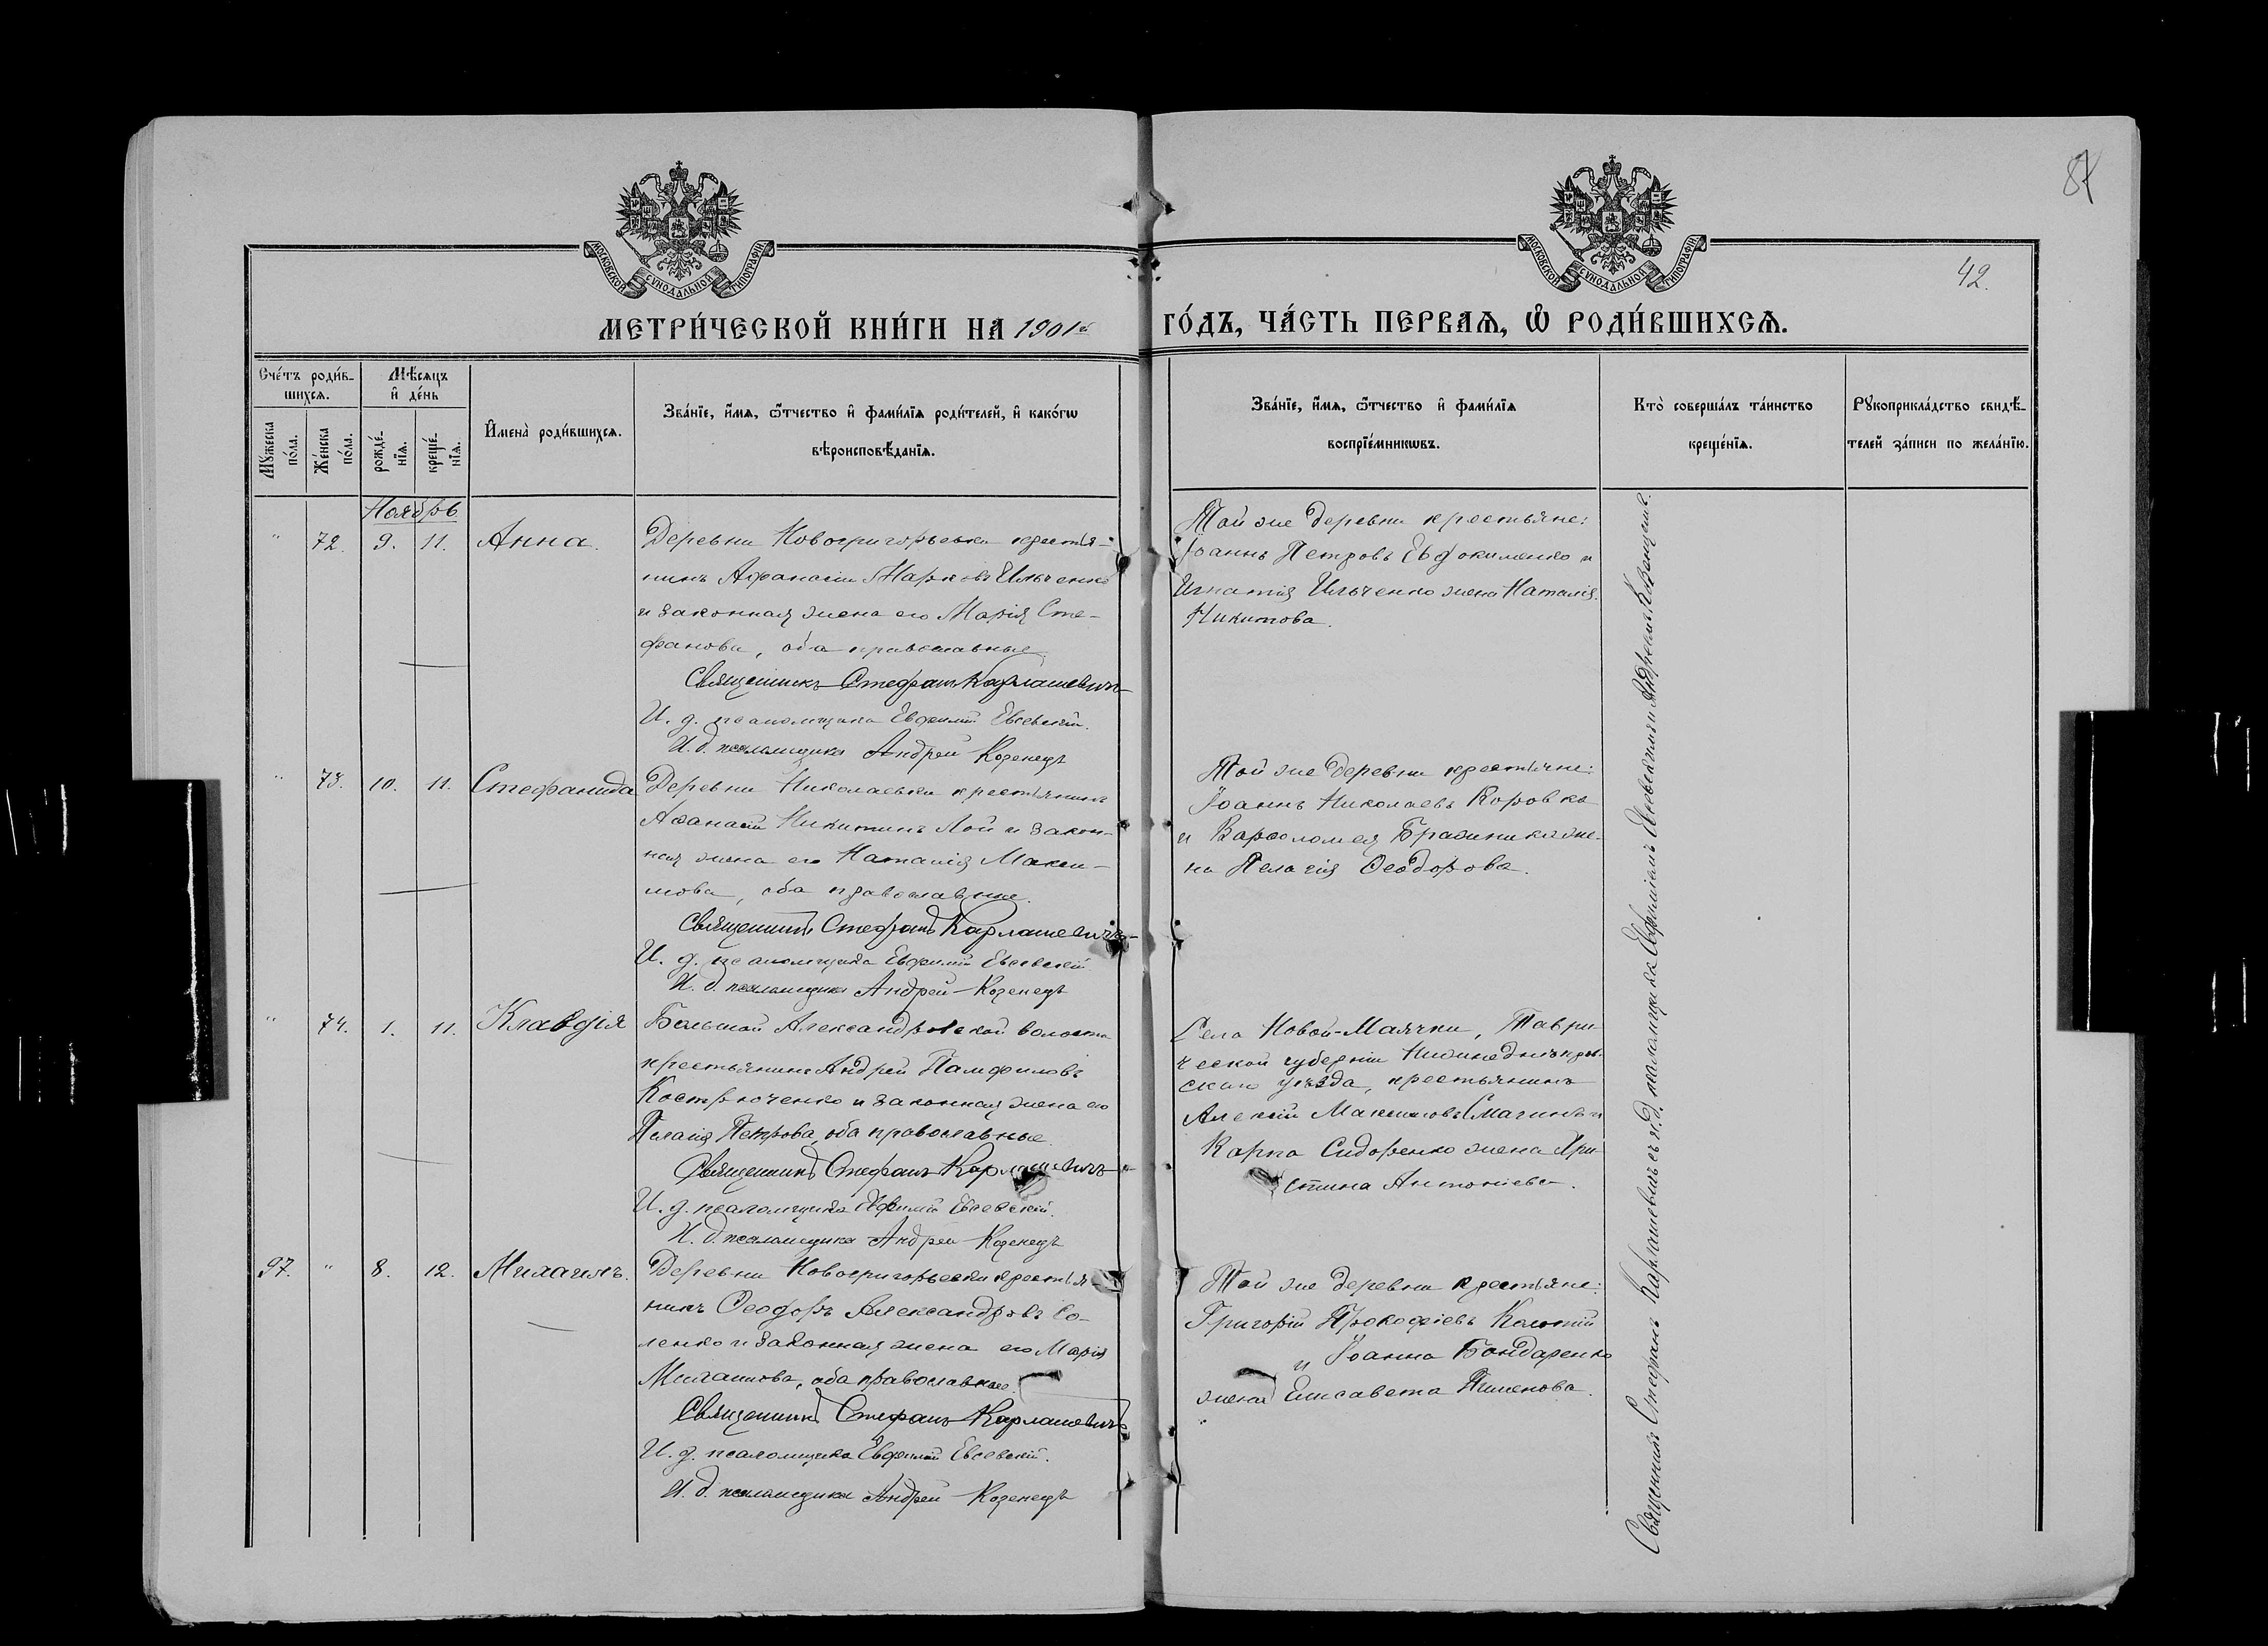 87
42.
МОСКОВСКОЙ СУНОДАЛЬНОЙ ТИПОГРАФІИ
МОСКОВСКОЙ СУНОДАЛЬНОЙ ТИПОГРАФІИ
МЕТРИ́ЧЕСКОЙ КНИ́ГИ НА 1901й ГО́ДЪ, ЧА́СТЬ ПЕРВАѦ, Ѽ РОДИ́ВШИХСѦ.
Сче́тъ роди́в-
шихсѧ.
Мꙋжеска
по́ла.
Же́нска
по́ла.
Мѣ́сѧцъ
и҆ де́нь
рожде́-
нїѧ.
креще́-
нїѧ.
И҆мена̀ роди́вшихсѧ.
Зва́нїе, и҆́мѧ, ѻ҆́тчество и҆ фами́лїѧ роди́телей, и҆ како́гѡ
вѣроисповѣ́данїѧ.
Зва́нїе, и҆́мѧ, ѻ҆́тчество и҆ фами́лїѧ
воспрїе́мникѡвъ.
Кто̀ соверша́лъ та́инство
креще́нїѧ.
Рꙋкоприкла́дство свидѣ́-
телей за́писи по жела́нїю.
Ноябрь
" 72. 9. 11. Анна.
Деревни Новогригорьевки крестья-
нинъ Афанасій Марковъ Ильченко
и законная жена его Марія Сте-
фанова, оба православные.
Священникъ Стефанъ Карлашевичъ
И. д. псаломщика Евфимій Евсевскій.
И. д. псаломщика Андрей Козенецъ
Той же деревни крестьяне:
Іоаннъ Петровъ Евдокименко и
Игнатія Ильченко жена Наталія
Никитова.
" 73. 10. 11. Стефанида
Деревни Николаевки крестьянинъ
Аѳанасій Никитинъ Лой и закон-
ная жена его Наталія Макси-
мова, оба православные.
Священникъ Стефанъ Карлашевичъ
И. д. псаломщика Евфимій Евсевскій
И. д. псаломщика Андрей Козенецъ
Той же деревни крестьяне:
Іоаннъ Николаевъ Коровка
и Варѳоломея Бражника же-
на Пелагія Ѳеодорова.
" 74. 1. 11. Клавдія
Большой Александровской волости
крестьянинъ Андрей Памфиловъ
Кострюченко и законная жена его
Пелагія Петрова, оба православные.
Священникъ Стефанъ Карлашевичъ
И. д. псаломщика Евфимій Евсевскій.
И. д. псаломщика Андрей Козенецъ
Села Новой-Маячки, Таври-
ческой губерніи Нижнеднѣпров-
скаго уѣзда, крестьянинъ
Алексій Максимовъ Смагинъ и
Карпа Сидоренко жена Хри-
стина Антоніева.
97. " 8. 12. Михаилъ.
Деревни Новогригорьевки крестья-
нинъ Ѳеодоръ Александровъ Со-
ленко и законная жена его Марія
Михаилова, оба православные.
Священникъ Стефанъ Карлашевичъ
И. д. псаломщика Евфимій Евсевскій.
И. д. псаломщика Андрей Козенецъ
Той же деревни крестьяне:
Григорій Прокофіевъ
и Іоанна Бондаренко
жена Елисавета Пименова.
Священникъ Стефанъ Карлашевичъ съ и. д. псаломщика Евфиміемъ Евсевскимъ и Андреемъ Козенцемъ.